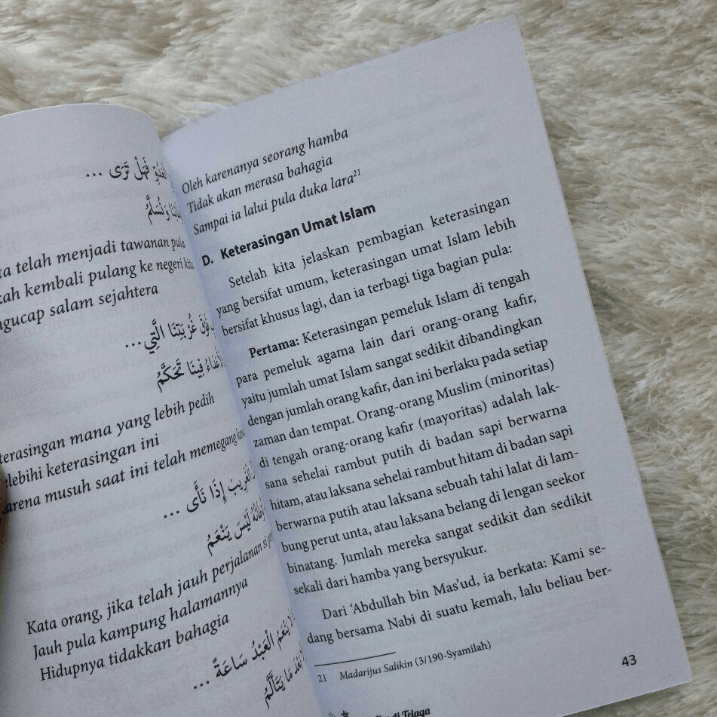 فَهَلْ تَرَى ...
وَنُسَلَّمُ
ta telah menjadi tawanan
kah kembali pulang ke negeri
gucap salam sejahtera
غُرْبَتِنَا الَّتِي ...
فِينَا تَحَكَّمُ
terasingan mana yang lebih pedih
lebihi keterasingan ini
arena musuh saat ini telah memegang
الْغَرِيبَ إِذَا نَأَى ...
لَيْسَ يَنْعَمُ
Kata orang, jika telah jauh perjalanan
Jauh pula kampung halamannya
Hidupnya tidakkan bahagia
يَنْعَمُ الْعَبْدُ سَاعَةً ...
Oleh karenanya seorang hamba
Tidak akan merasa bahagia
Sampai ia lalui pula duka lara21
D. Keterasingan Umat Islam
Setelah kita jelaskan pembagian keterasingan
yang bersifat umum, keterasingan umat Islam lebih
bersifat khusus lagi, dan ia terbagi tiga bagian pula:
Pertama: Keterasingan pemeluk Islam di tengah
para pemeluk agama lain dari orang-orang kafir,
yaitu jumlah umat Islam sangat sedikit dibandingkan
dengan jumlah orang kafir, dan ini berlaku pada setiap
zaman dan tempat. Orang-orang Muslim (minoritas)
di tengah orang-orang kafir (mayoritas) adalah lak-
sana sehelai rambut putih di badan sapi berwarna
hitam, atau laksana sehelai rambut hitam di badan sapi
berwarna putih atau laksana sebuah tahi lalat di lam-
bung perut unta, atau laksana belang di lengan seekor
binatang. Jumlah mereka sangat sedikit dan sedikit
sekali dari hamba yang bersyukur.
Dari 'Abdullah bin Mas'ud, ia berkata: Kami se-
dang bersama Nabi di suatu kemah, lalu beliau ber-
21 Madarijus Salikin (3/190-Syamilah)
43
di Telaga